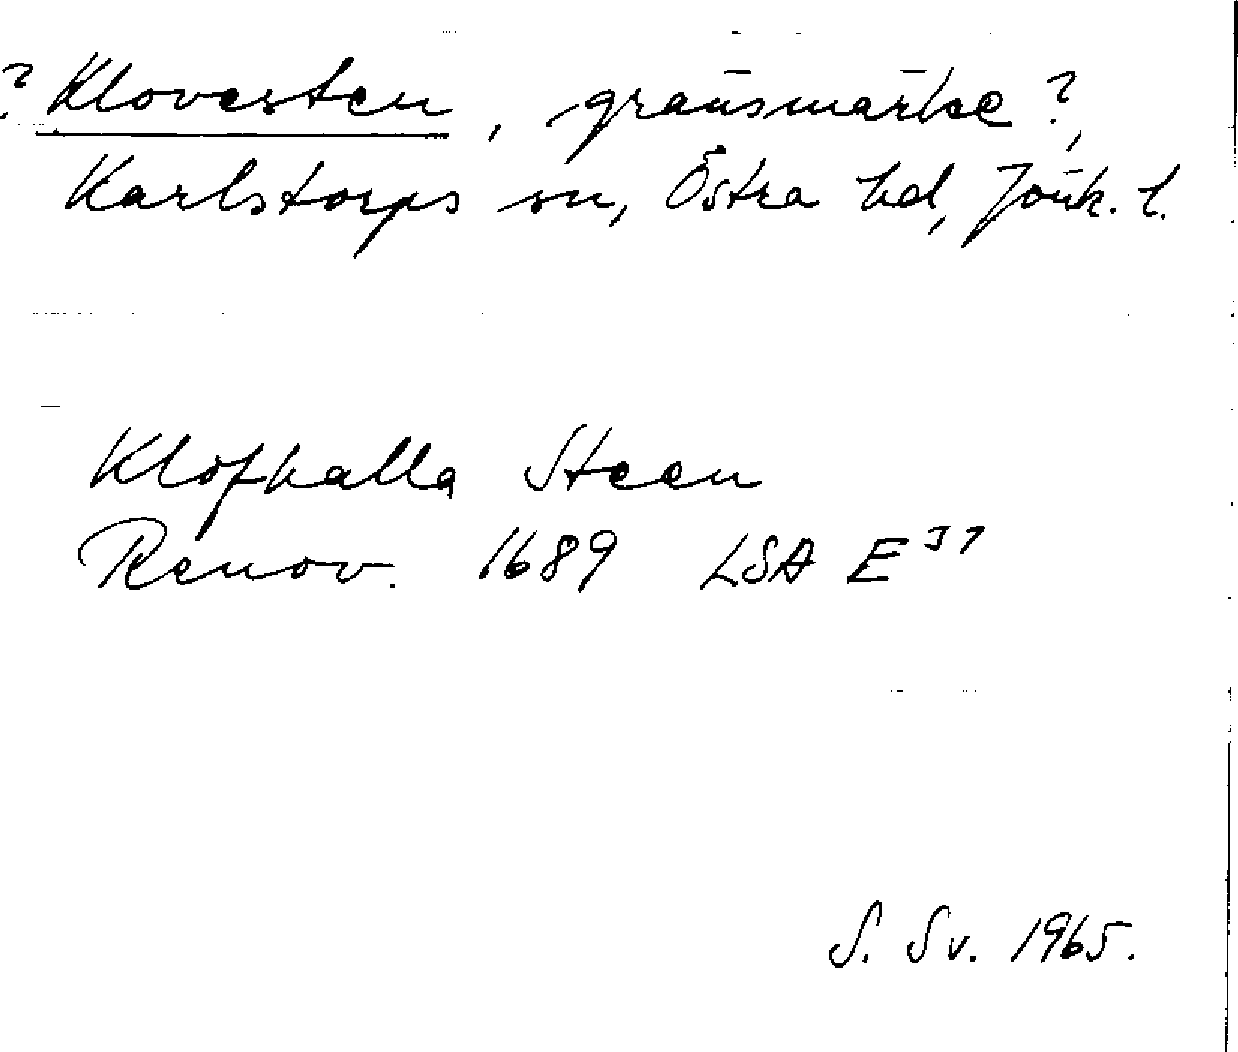 ? Klovesten, gränsmärke?,
Karlstorps sn, Östra hd, Jönk. l.
Klofhalla Steen
Renov. 1689 LSA E³⁷
S. Sv. 1965.